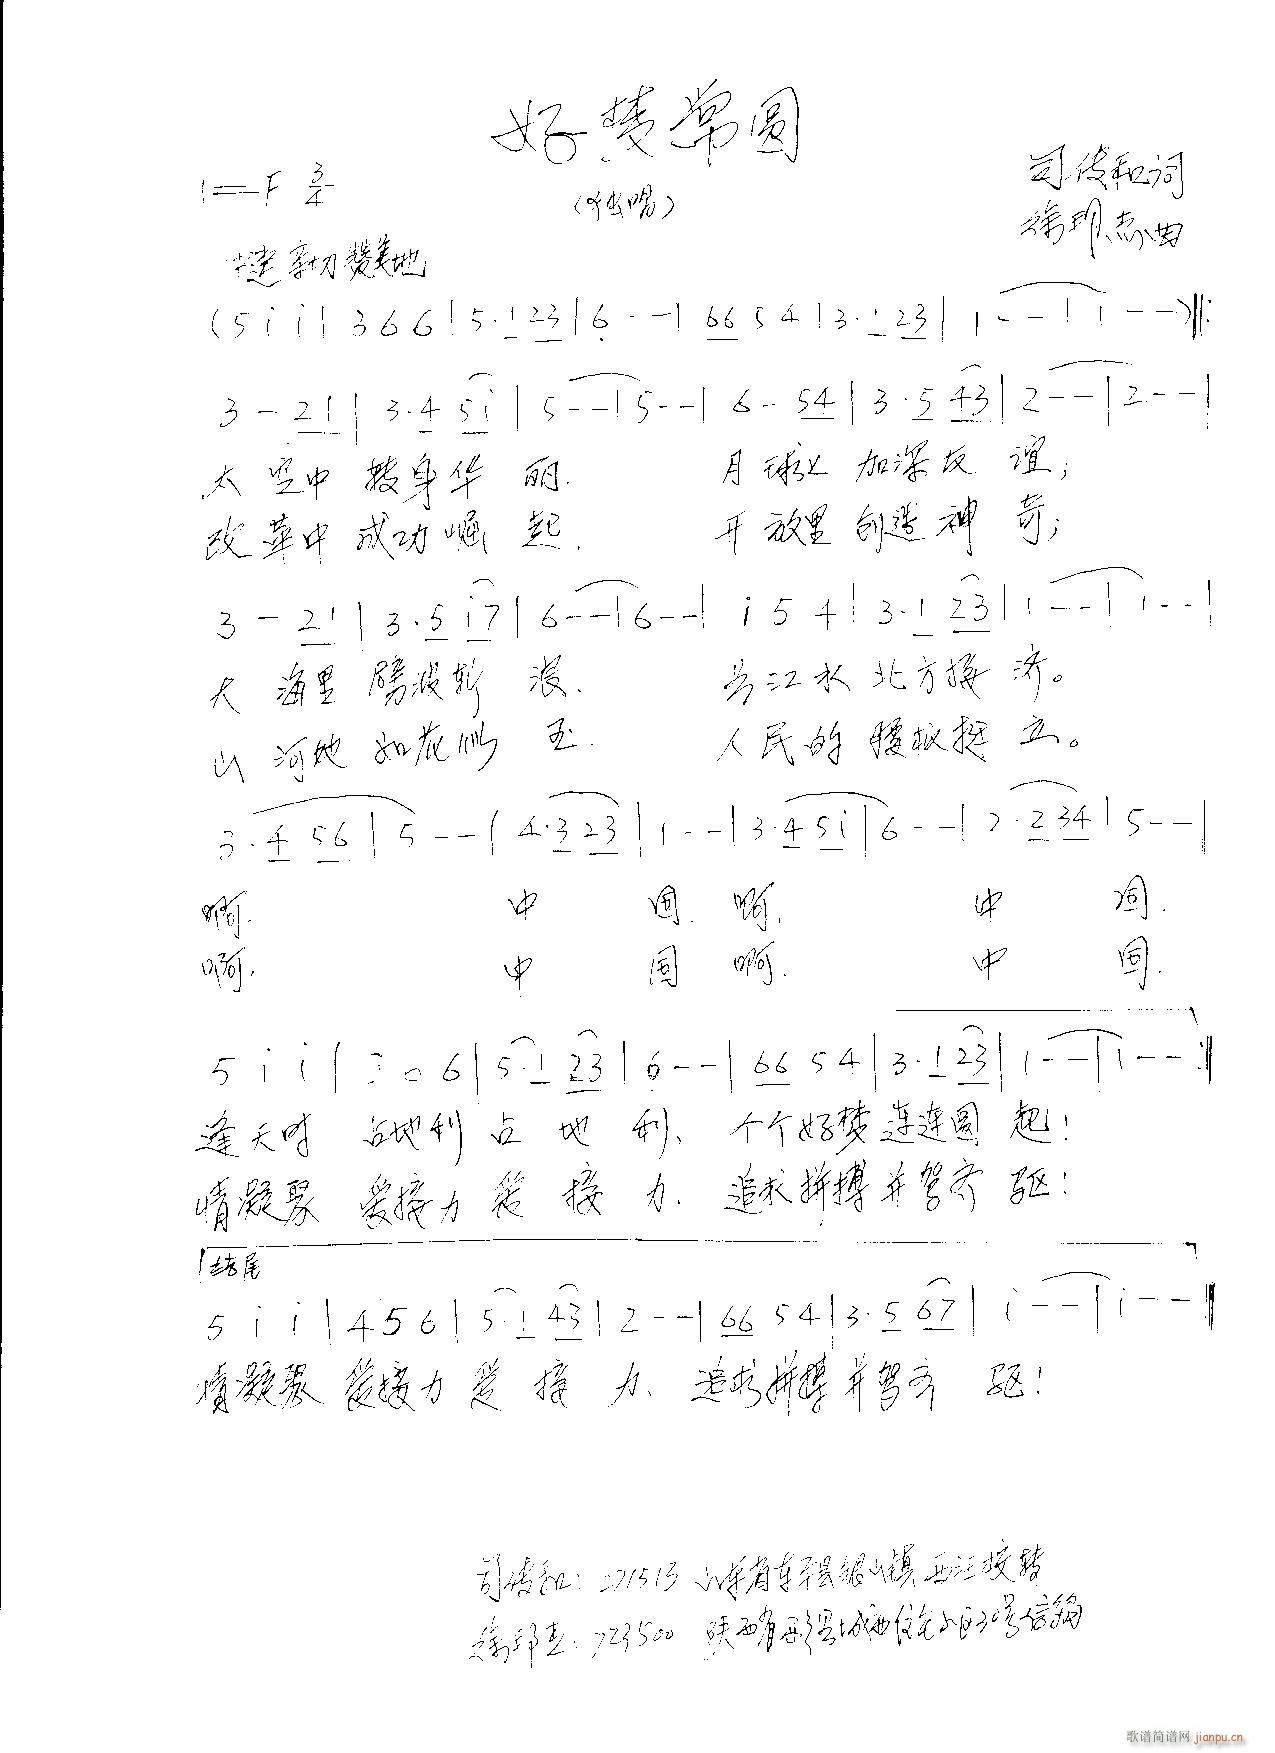 好梦常圆
1=F 3/4
(独唱)
司传和词
徐邦杰曲
中速 亲切赞美地
(5 i i | 3 6 6 | 5· 1 23 | 6 - - | 66 5 4 | 3· 1 23 | 1 - - | 1 - -) ‖:
3 - 21 | 3· 4 5i | 5 - - | 5 - - | 6 - 54 | 3· 5 43 | 2 - - | 2 - - |
太空中 披身华丽. 月球上 加深友谊;
改革中 成功崛起. 开放里 创造神奇;
3 - 21 | 3· 5 i7 | 6 - - | 6 - - | i 5 4 | 3· 1 23 | 1 - - | 1 - - |
大海里 劈波斩浪. 长江水 北方接济。
山河地 如花似玉. 人民的 腰板挺立。
3· 4 56 | 5 - - | 4· 3 23 | 1 - - | 3· 4 5i | 6 - - | 2· 2 34 | 5 - - |
啊. 中国. 啊. 中国.
啊. 中国 啊. 中国.
5 i i | 6 | 5· 1 23 | 6 - - | 66 5 4 | 3· 1 23 | 1 - - | 1 - - :‖
逢天时 占地利占地利、 个个好梦连连圆起!
情凝聚 爱接力爱接力. 追求拼搏并驾齐驱!
结尾
5 i i | 4 5 6 | 5· 1 43 | 2 - - | 66 5 4 | 3· 5 67 | i - - | i - - ‖
情凝聚 爱接力爱接力、 追求拼搏并驾齐驱!
司传和: 271513 山东省东平县银山镇西汪校转
徐邦杰: 723500 陕西省 县城西住宅小区30号信箱
歌谱简谱网 jianpu.cn